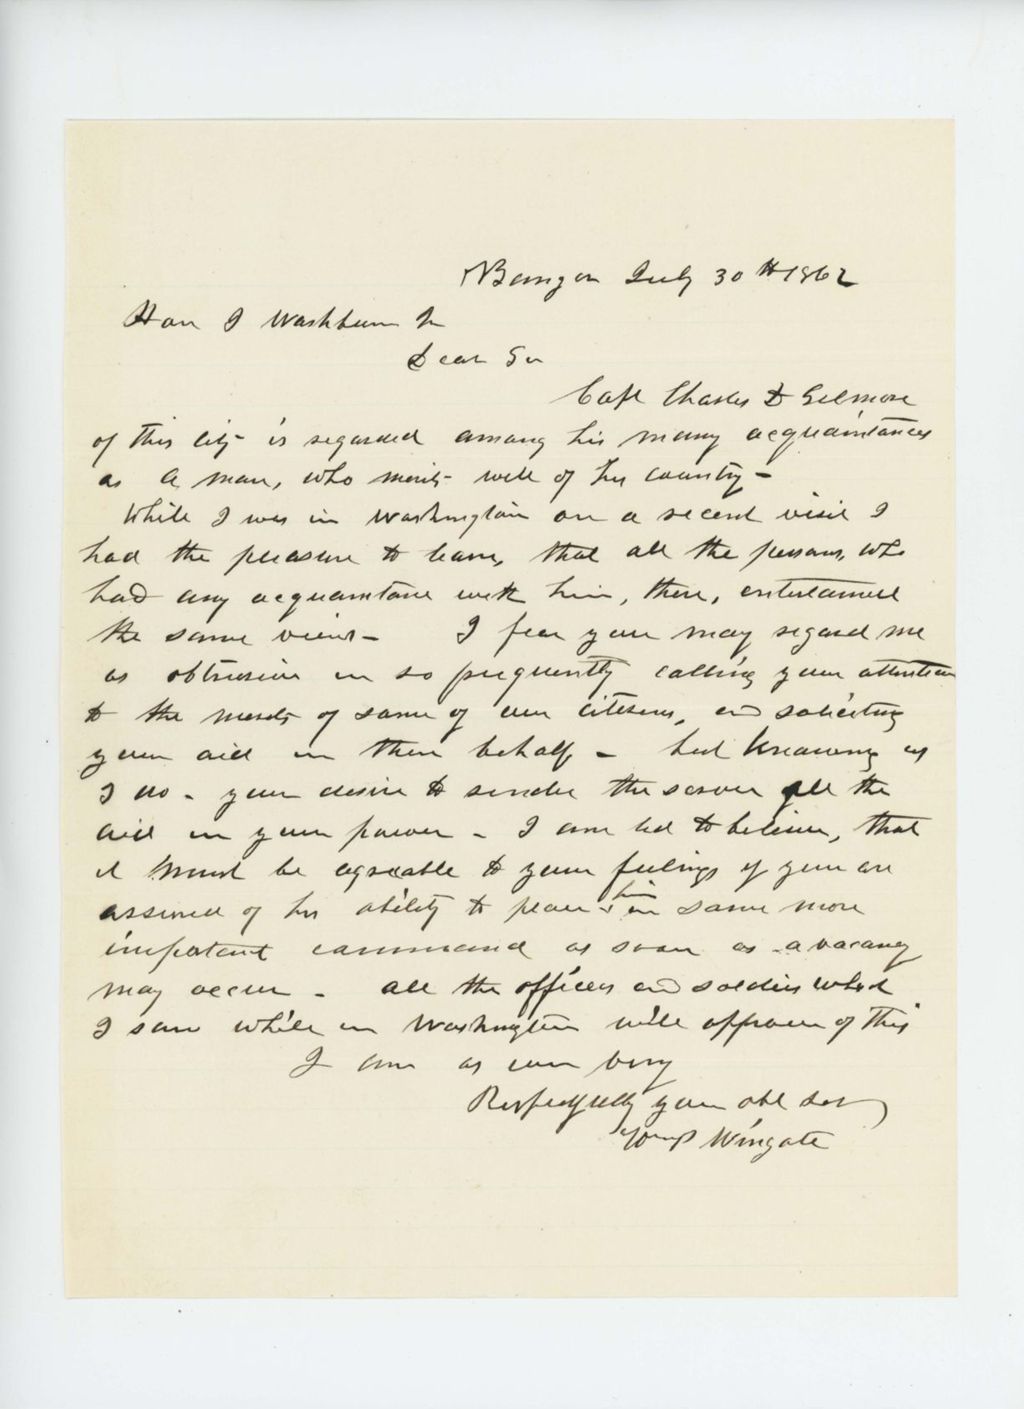 Bangor July 30th 1862
Hon I Washburn Jr
Dear Sir
Capt Charles D Gilmore
of this city - is regarded among his many acquaintances
as a man, who merits - well of his country -
While I was in Washington on a recent visit I
had the pleasure to learn, that all the persons, who
had any acquaintance with him, there, entertained
the same views - I fear you may regard me
as obtrusive in so frequently calling your attention
to the merits of some of our citizens, and soliciting
your aid in their behalf - but knowing as
I do - your desire to render the service all the
aid in your power - I am led to believe, that
it must be agreeable to your feelings if you are
assured of his ability to place him in some more
important command as soon as a vacancy
may occur - all the officers and soldiers which
I saw while in Washington will approve of this
I am as ever very
Respectfully your obt Ser
Wingate